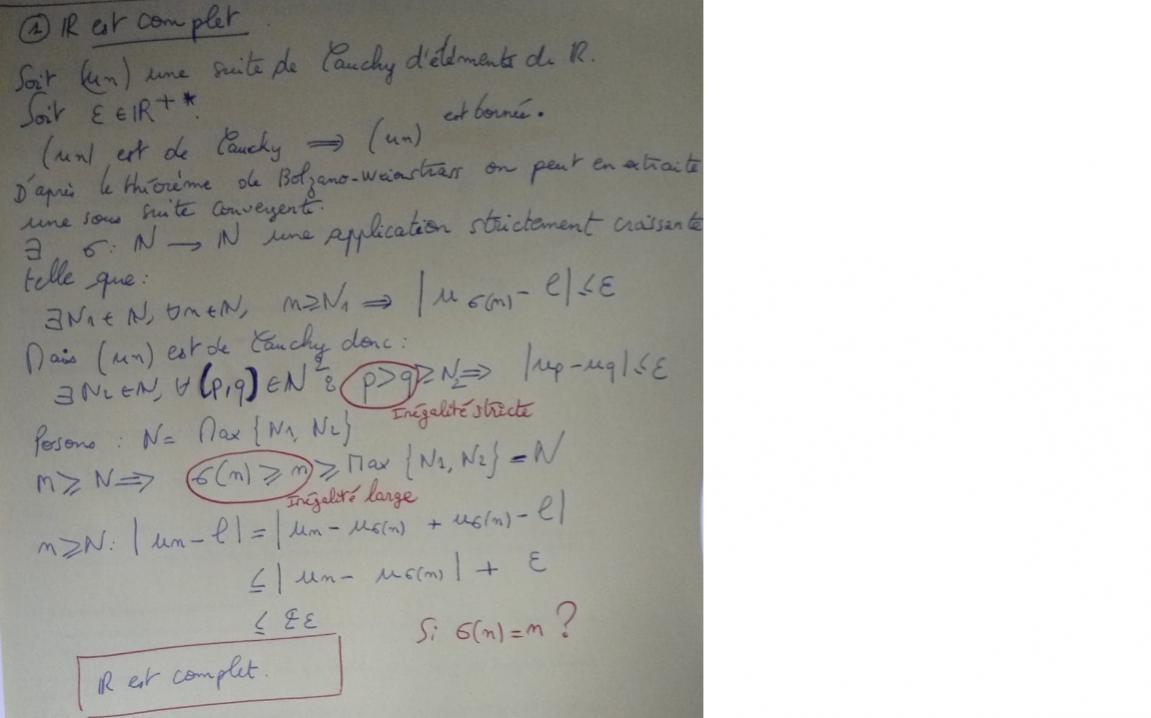 ① ℝ est complet.
Soit (un) une suite de Cauchy d'éléments de ℝ.
Soit ε ∈ ℝ+*.
(un) est de Cauchy ⟹ (un) est bornée.
D'après le théorème de Bolzano-Weierstrass on peut en extraite
une sous suite convergente.
∃ σ: ℕ → ℕ une application strictement croissante
telle que:
∃N1 ∈ ℕ, ∀n∈ℕ, n⩾N1 ⟹ |uσ(n) - l| ≤ ε
Mais (un) est de Cauchy donc:
∃N2∈ℕ, ∀(p,q)∈ℕ² : p>q⩾N2 ⟹ |up-uq| ≤ ε
Inégalité stricte
Posons : N= Max {N1, N2}
n⩾N ⟹ σ(n)⩾n ⩾ Max {N1, N2} = N
Inégalité large
n⩾N: |un-l| = |un-uσ(n) + uσ(n)-l|
≤ |un- uσ(n)| + ε
≤ 2ε
Si σ(n)=n ?
ℝ est complet.